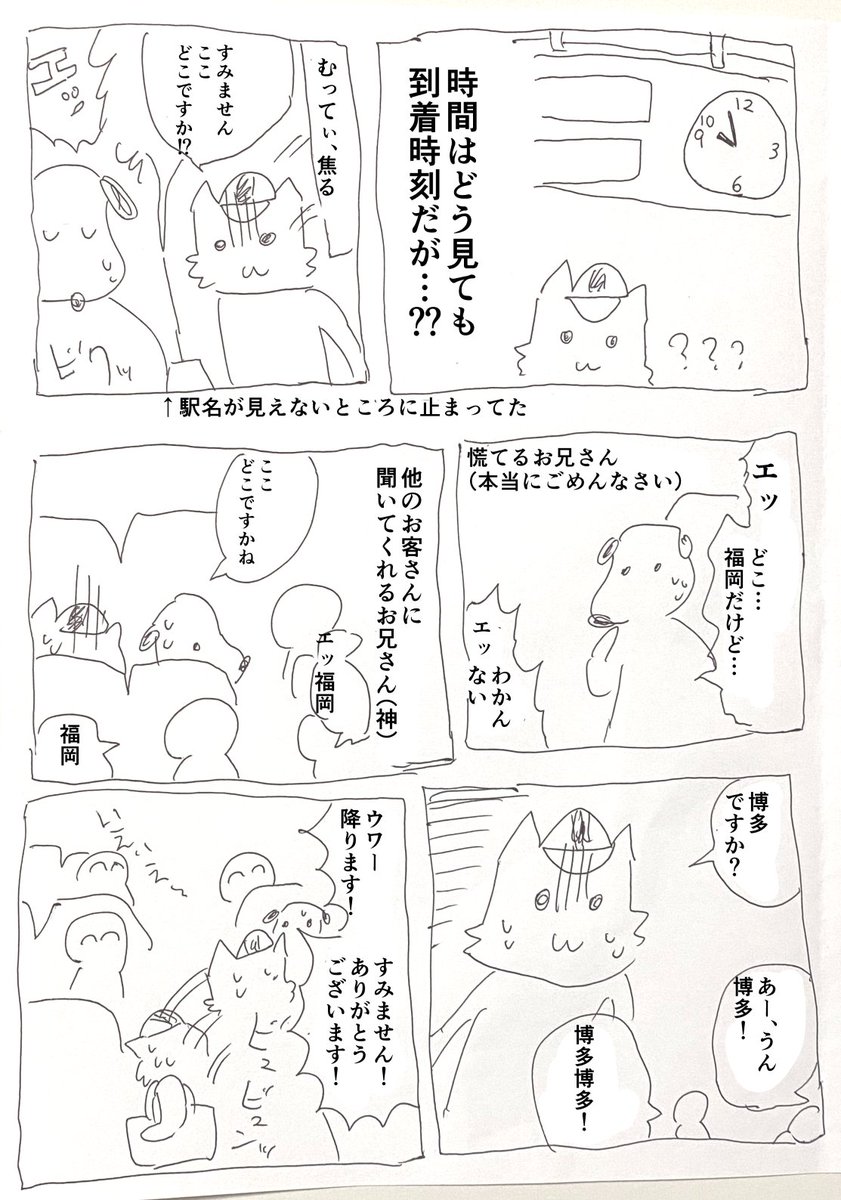 時間はどう見ても
到着時刻だが…??
12
10
9
3
6
???
むってぃ、焦る
すみません
ここ
どこですか!?
エッ
ビクッ
↑駅名が見えないところに止まってた
慌てるお兄さん
(本当にごめんなさい)
エッ
どこ…
福岡だけど…
エッ
わかん
ない
他のお客さんに
聞いてくれるお兄さん(神)
ここ
どこですかね
エッ福岡
福岡
博多
ですか?
あー、うん
博多!
博多博多!
ウワー
降ります!
すみません!
ありがとう
ございます!
ビュ
ビュンッ